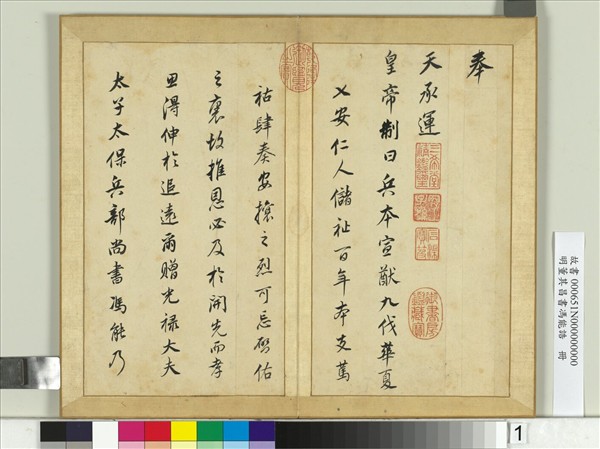 奉
天承運
皇帝制曰兵本宣猷九伐華夏
乂安仁人儲祉百年本支篤
祜肆奏安攘之烈可忘啓佑
之褒故推恩必及於開先而孝
思得伸於追遠爾贈光祿大夫
太子太保兵部尚書馮能乃
三希堂精鑑璽
宜子孫
故書 000651N000000000
明董其昌書馮能誥 冊
1